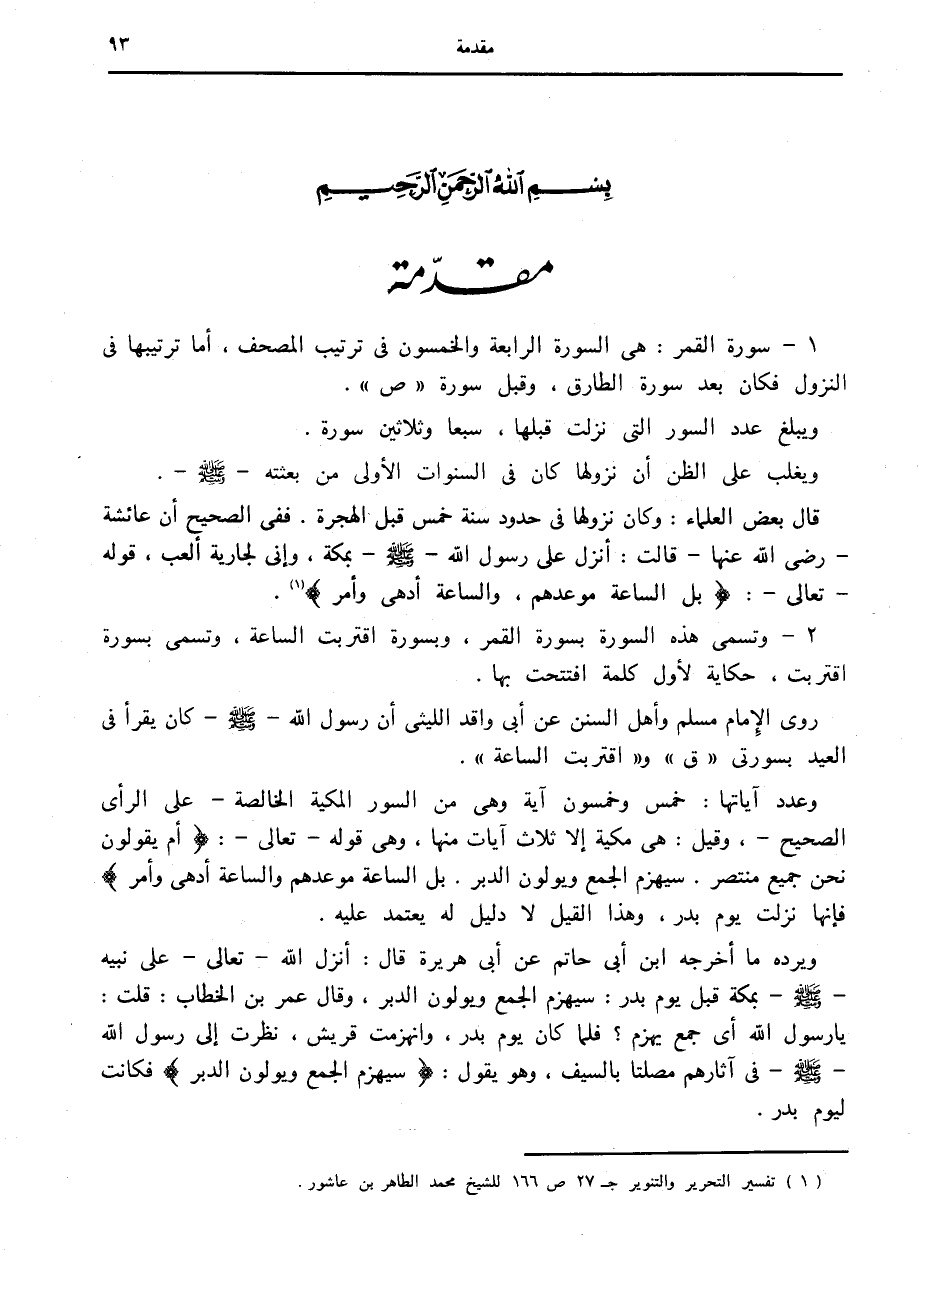 مقدمة ٩٣
بِسْمِ ٱللَّهِ ٱلرَّحْمَٰنِ ٱلرَّحِيمِ
مقدّمة
١ - سورة القمر : هى السورة الرابعة والخمسون فى ترتيب المصحف ، أما ترتيبها فى
النزول فكان بعد سورة الطارق ، وقبل سورة « ص » .
ويبلغ عدد السور التى نزلت قبلها ، سبعا وثلاثين سورة .
ويغلب على الظن أن نزولها كان فى السنوات الأولى من بعثته - ﷺ - .
قال بعض العلماء : وكان نزولها فى حدود سنة خمس قبل الهجرة . ففى الصحيح أن عائشة
- رضى الله عنها - قالت : أنزل على رسول الله - ﷺ - بمكة ، وإنى لجارية ألعب ، قوله
- تعالى - : ﴿ بل الساعة موعدهم ، والساعة أدهى وأمر ﴾(١) .
٢ - وتسمى هذه السورة بسورة القمر ، وبسورة اقتربت الساعة ، وتسمى بسورة
اقتربت ، حكاية لأول كلمة افتتحت بها .
روى الإِمام مسلم وأهل السنن عن أبى واقد الليثى أن رسول الله - ﷺ - كان يقرأ فى
العيد بسورتى « ق » و« اقتربت الساعة » .
وعدد آياتها : خمس وخمسون آية وهى من السور المكية الخالصة - على الرأى
الصحيح - ، وقيل : هى مكية إلا ثلاث آيات منها ، وهى قوله - تعالى - : ﴿ أم يقولون
نحن جميع منتصر . سيهزم الجمع ويولون الدبر . بل الساعة موعدهم والساعة أدهى وأمر ﴾
فإنها نزلت يوم بدر ، وهذا القيل لا دليل له يعتمد عليه .
ويرده ما أخرجه ابن أبى حاتم عن أبى هريرة قال : أنزل الله - تعالى - على نبيه
- ﷺ - بمكة قبل يوم بدر : سيهزم الجمع ويولون الدبر ، وقال عمر بن الخطاب : قلت :
يارسول الله أى جمع يهزم ؟ فلما كان يوم بدر ، وانهزمت قريش ، نظرت إلى رسول الله
- ﷺ - فى آثارهم مصلتا بالسيف ، وهو يقول : ﴿ سيهزم الجمع ويولون الدبر ﴾ فكانت
ليوم بدر .
( ١ ) تفسير التحرير والتنوير جـ ٢٧ ص ١٦٦ للشيخ محمد الطاهر بن عاشور .